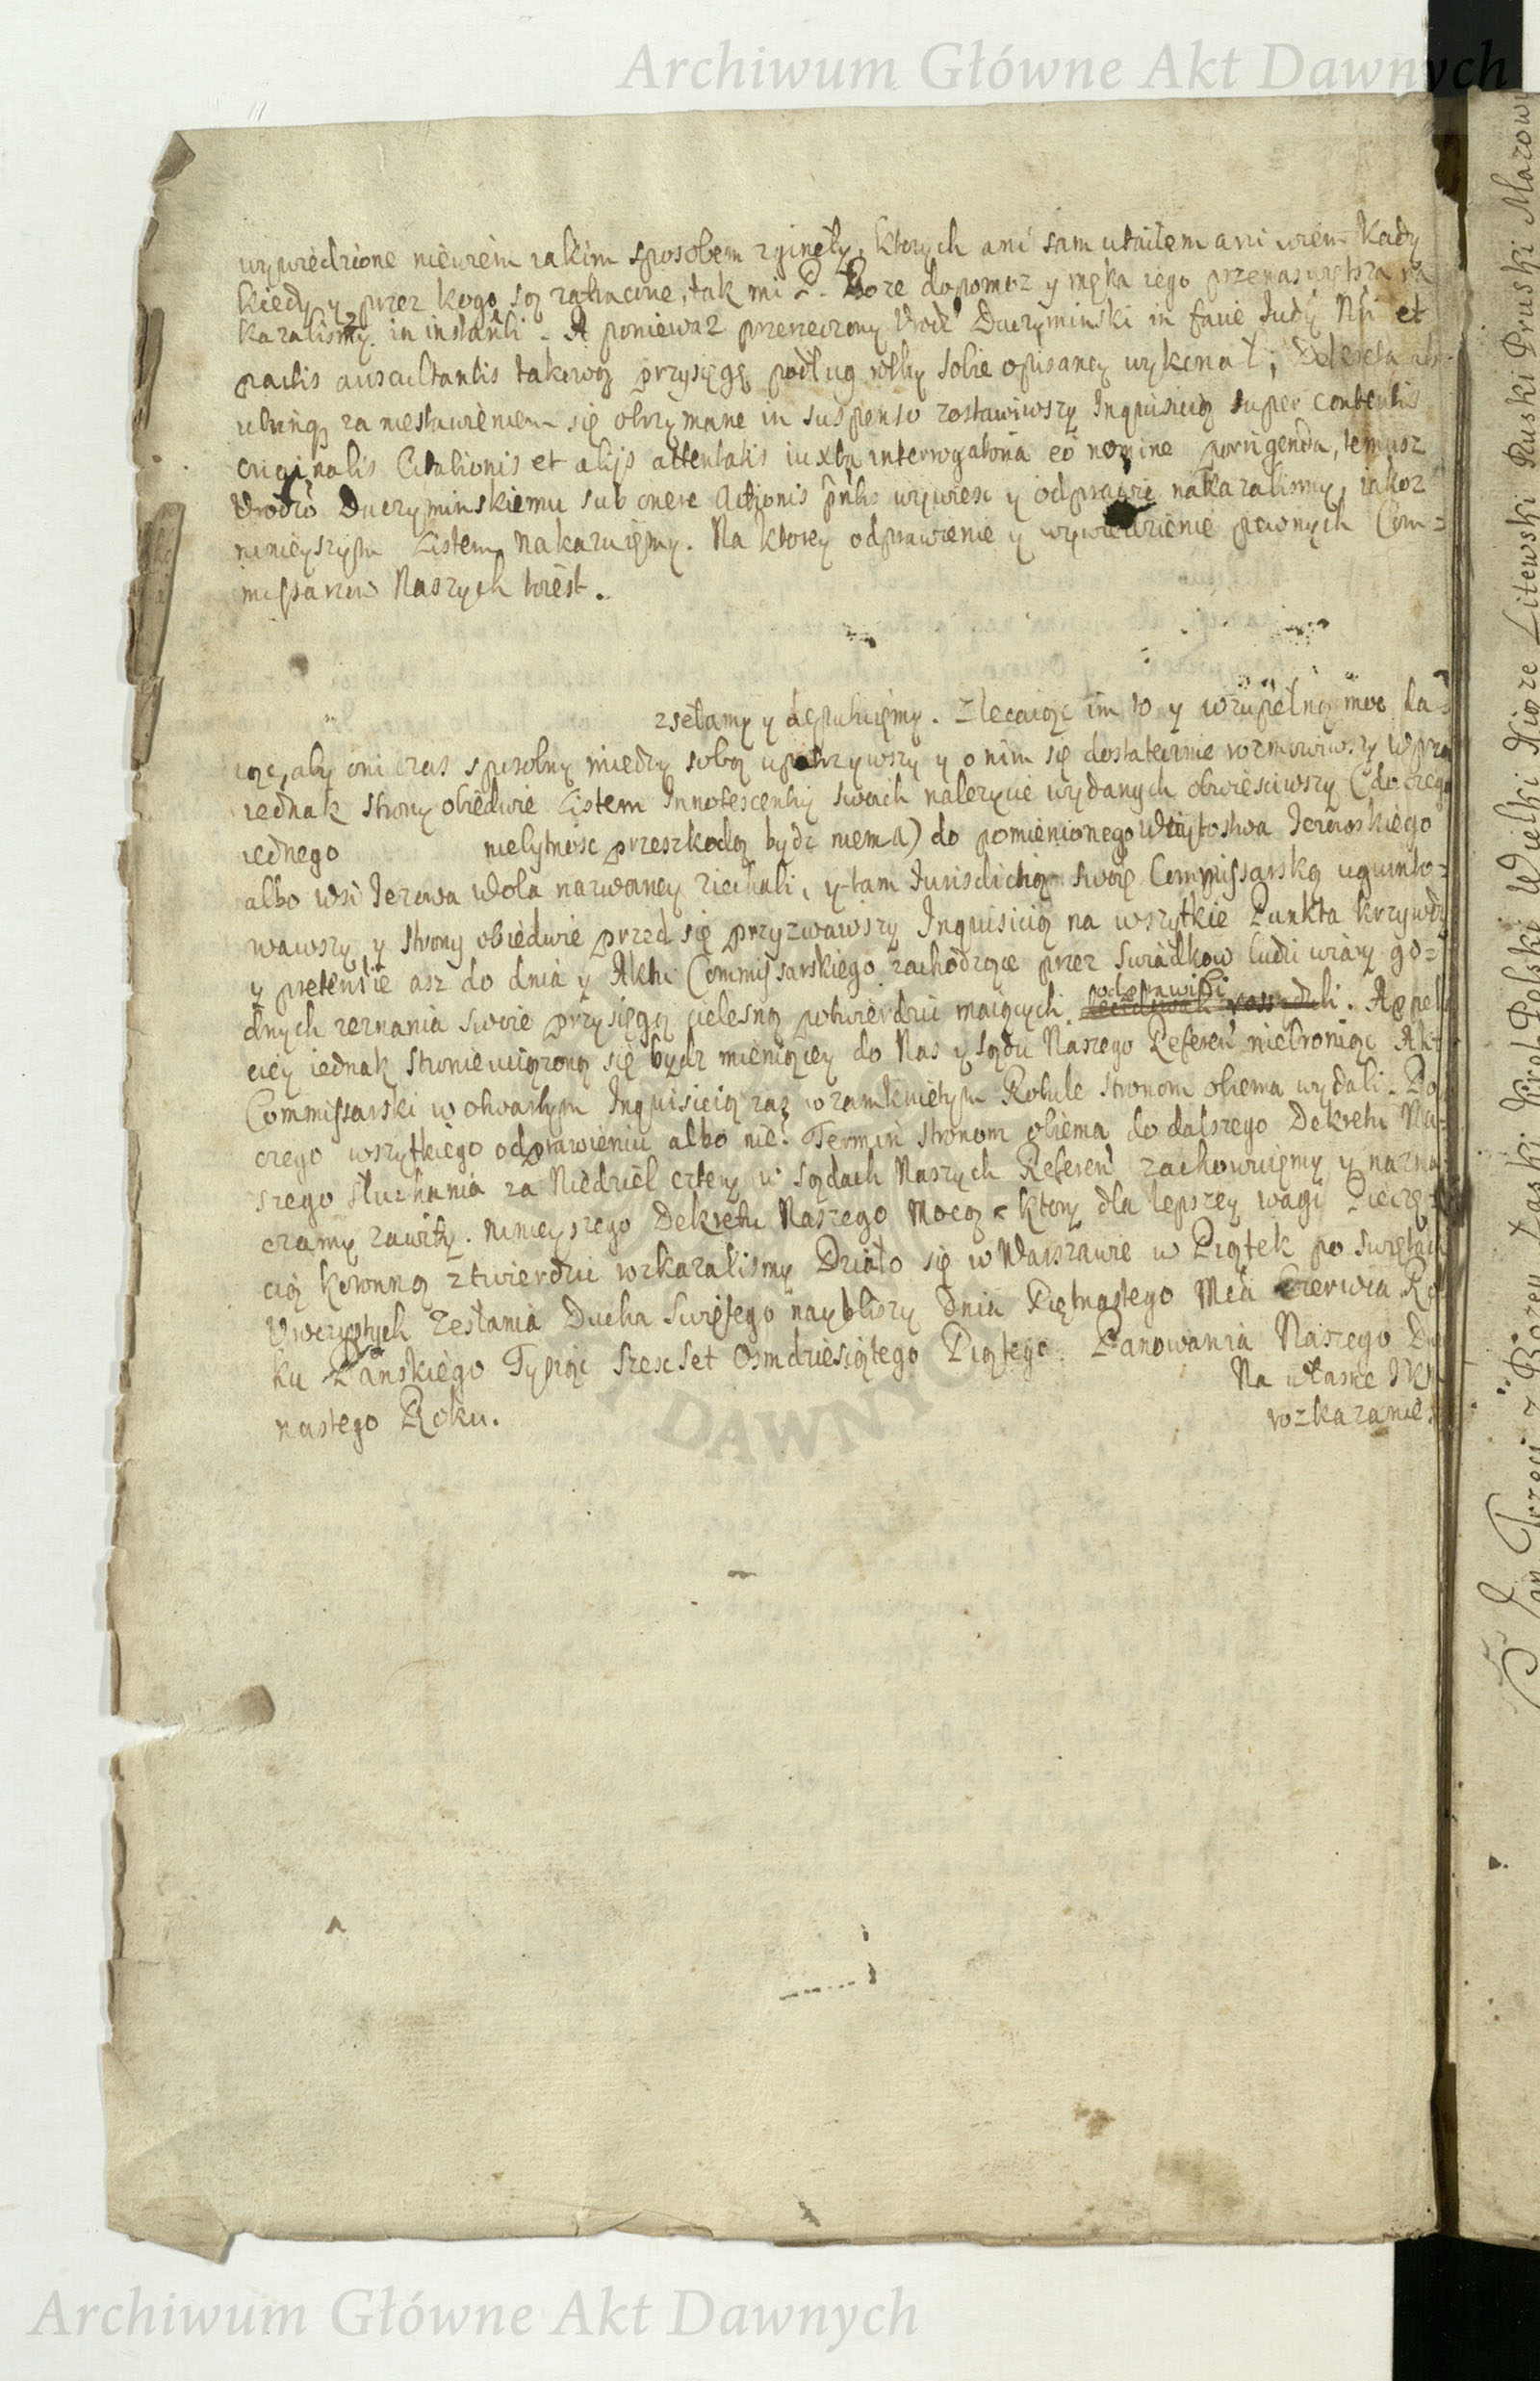 Archiwum Główne Akt Dawnych
wywiedzione niewiem iakim sposobem zginęły, ktorych ani sam utaiłem ani wiem kędy
kiedy y przez kogo są zatracone, tak mi P. Boze dopomoz y męka iego przenaswiętsza na
kazalismy in instanti. A poniewaz przerzeczony Urodz Duczyminski in facie Judÿ Nri et
partis auscultantis takową przysięgę podług rotÿ sobie opisaney wykonał;
utrinq za niestawieniem się otrzymane in suspenso zostawiwszy Inquisicią super contentis
originalis Citationis et alijs attentatis iuxta interrogatoria eo nomine porrigenda, temusz
Urodzo Duczyminskiemu sub onere Actionis pntis wywiesc y odprawic nakazalismy, iakoz
ninieyszym Listem nakazuięmy. Na ktorey odprawienie y wywiedzienie pewnych Com=
missarzow Naszych to iest.
zsełamy y deputuięmy. Zlecaiąc im to y w zupełną moc da=
iąc, aby oni czas sposobny miedzy sobą upatrzywszy y o nim się dostatecznie rozmowiwszy wprzo
iednak strony obiedwie Listem Innotescentiy swoich nalezycie wydanych obwiesciwszy (do czego
iednego niebytnosc przeszkodą bydz niema) do pomienionego Woytostwa Jezewskiego
albo wsi Jezewa Wola nazwaney ziechali, y tam Jurisdictią swoię Commissarską ugrunto=
wawszy y strony obiedwie przed się przyzwawszy Inquisicią na wszytkie Punkta krzywdy
y pretensie asz do dnia y Aktu Commissarskiego zachodzące przez Swiadkow ludzi wiary go=
dnych zeznania swoie przysięgą cielesną potwierdzic maiących odprawili. Appella
ciey iednak stronie uciązoną się bydz mieniącey do Nas y sądu Naszego Referen niebroniąc Akt
Commissarski w otwartym Inquisicią zaz w zamkniętym Rotule stronom obiema wydali. Po
czego wszytkiego odprawieniu albo nie? Termin stronom obiema do dalszego Dekretu Na=
szego słuchania za Niedziel cztery w sądach Naszych Referen zachowuięmy y nazna
czamy zawity. ninieyszego Dekretu Naszego Mocą ktory dla lepszey wagi Pieczę=
cią koronną ztwierdzic rozkazalismy Działo się w Warszawie w Piątek po Swiętach
Uroczystych Zesłania Ducha Swiętego naybliszy Dnia Piętnastego Mca Czerwca Ro
ku Panskiego Tysiąc szesc set Osmdziesiątego Piątego. Panowania Naszego Dwu
nastego Roku.
Na własne JKM
rozkazanie
Archiwum Główne Akt Dawnych